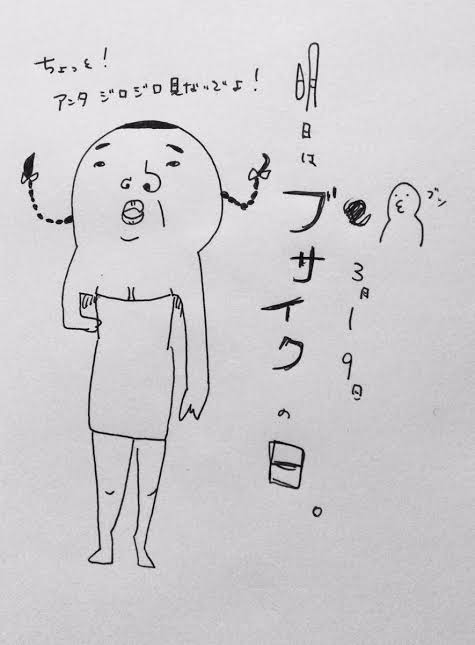 ちょっと!
アンタ ジロジロ見ないでよ!
明日はブサイクの日。
3月19日
ブン